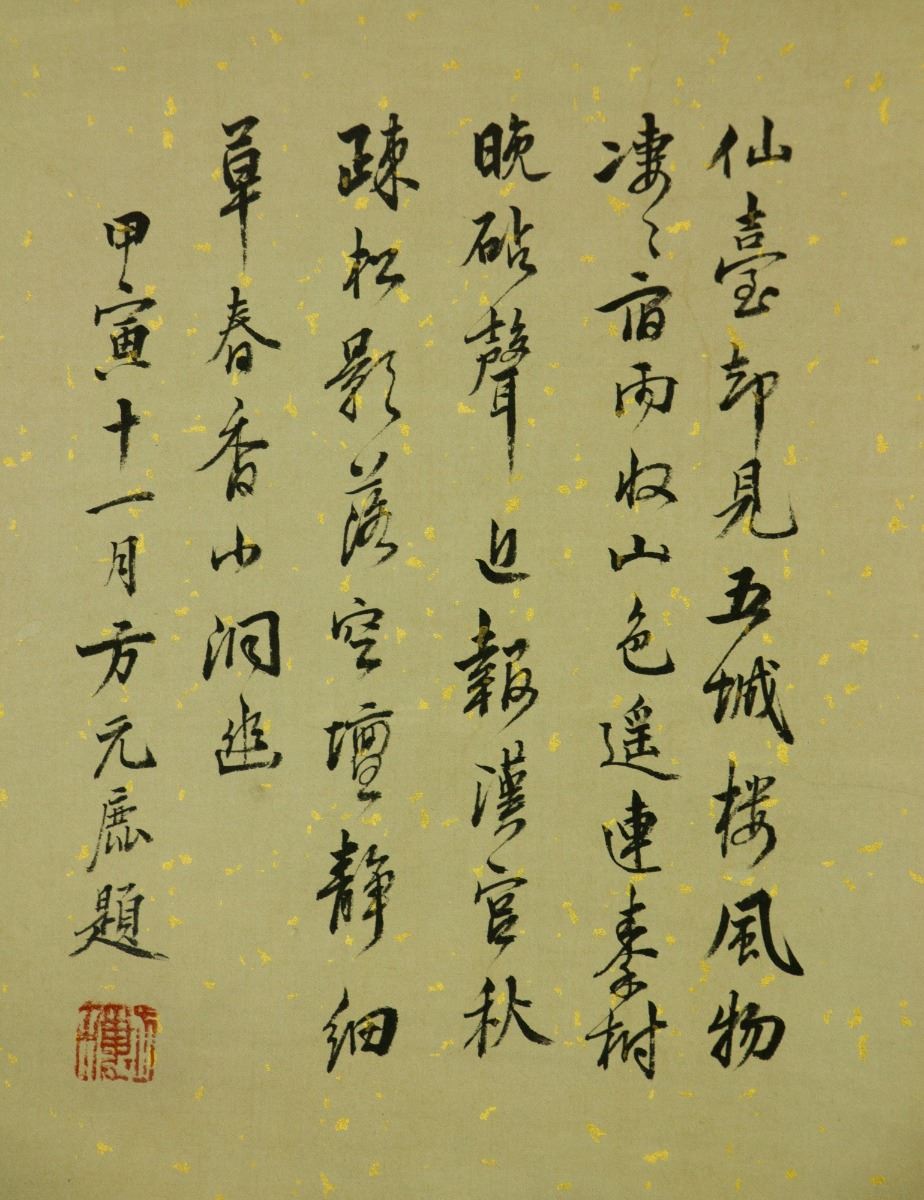 仙臺却見五城楼風物
凄々宿雨收山色遥連秦樹
晚砧聲近報漢宮秋
疎松影落空壇静細
草春香小洞幽
甲寅十一月方元鹿題